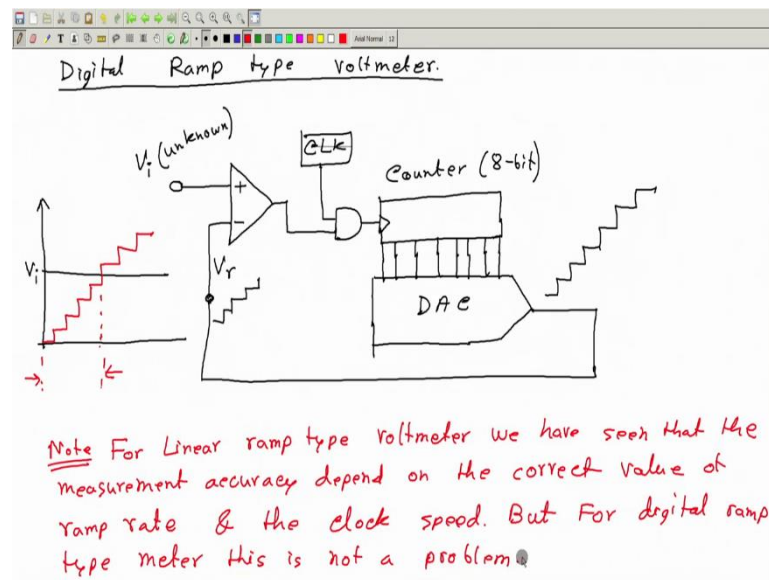 Arial Normal 12
Digital Ramp type voltmeter.
Vi (unknown)
CLK
Counter (8-bit)
+
-
Vi
Vr
DAC
Note For Linear ramp type voltmeter we have seen that the
measurement accuracy depend on the correct value of
ramp rate & the clock speed. But For digital ramp
type meter this is not a problem